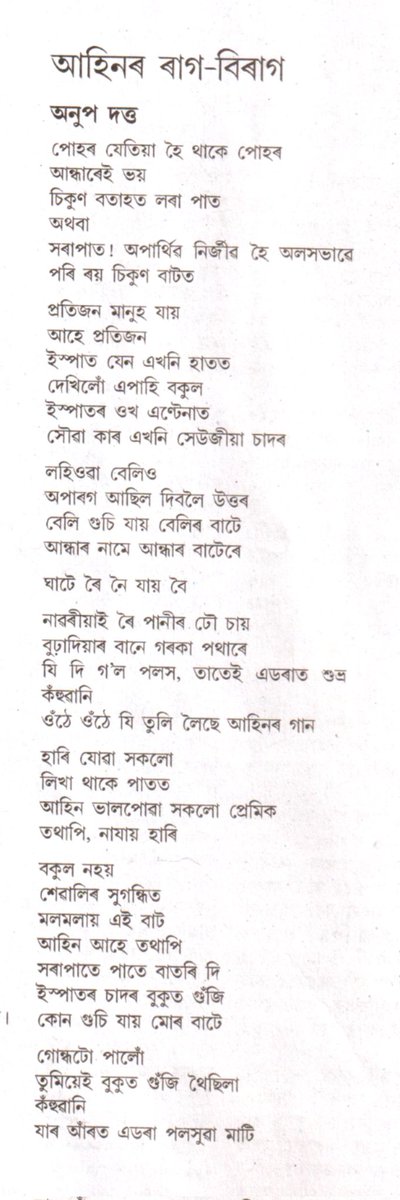 আহিনৰ ৰাগ-বিৰাগ
অনুপ দত্ত
পোহৰ যেতিয়া হৈ থাকে পোহৰ
আন্ধাৰেই ভয়
চিকুণ বতাহত লৰা পাত
অথবা
সৰাপাত! অপাৰ্থিৱ নিৰ্জীৱ হৈ অলসভাৱে
পৰি ৰয় চিকুণ বাটত
প্ৰতিজন মানুহ যায়
আহে প্ৰতিজন
ইস্পাত যেন এখনি হাতত
দেখিলোঁ এপাহি বকুল
ইস্পাতৰ ওখ এণ্টেনাত
সৌৱা কাৰ এখনি সেউজীয়া চাদৰ
লহিওৱা বেলিও
অপাৰগ আছিল দিবলৈ উত্তৰ
বেলি গুচি যায় বেলিৰ বাটে
আন্ধাৰ নামে আন্ধাৰ বাটেৰে
ঘাটে ৰৈ নৈ যায় বৈ
নাৱৰীয়াই ৰৈ পানীৰ ঢৌ চায়
বুঢ়াদিয়াৰ বানে গৰকা পথাৰে
যি দি গ'ল পলস, তাতেই এডৰাত শুভ্ৰ
কঁহুৱানি
ওঁঠে ওঁঠে যি তুলি লৈছে আহিনৰ গান
হাৰি যোৱা সকলো
লিখা থাকে পাতত
আহিন ভালপোৱা সকলো প্ৰেমিক
তথাপি, নাযায় হাৰি
বকুল নহয়
শেৱালিৰ সুগন্ধিত
মলমলায় এই বাট
আহিন আহে তথাপি
সৰাপাতে পাতে বাতৰি দি
ইস্পাতৰ চাদৰ বুকুত গুঁজি
। কোন গুচি যায় মোৰ বাটে
গোন্ধটো পালোঁ
তুমিয়েই বুকুত গুঁজি থৈছিলা
কঁহুৱানি
যাৰ আঁৰত এডৰা পলসুৱা মাটি